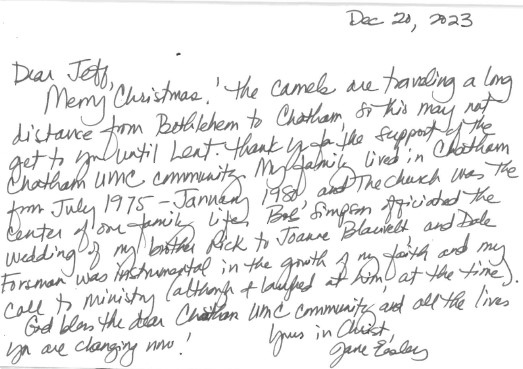 Dec 20, 2023
Dear Jeff,
Merry Christmas! The camels are traveling a long
distance from Bethlehem to Chatham, so this may not
get to you until Lent. Thank you for the support of the
Chatham UMC community. My family lived in Chatham
from July 1975 - January 1980 and The church was the
center of our family life. Bob Simpson officiated the
wedding of my brother Rick to Joanne Blauvelt and Dale
Forsman was instrumental in the growth of my faith and my
call to ministry (although I laughed at him at the time).
God bless the dear Chatham UMC community and all the lives
you are changing now!
Yours in Christ,
Jane Easley